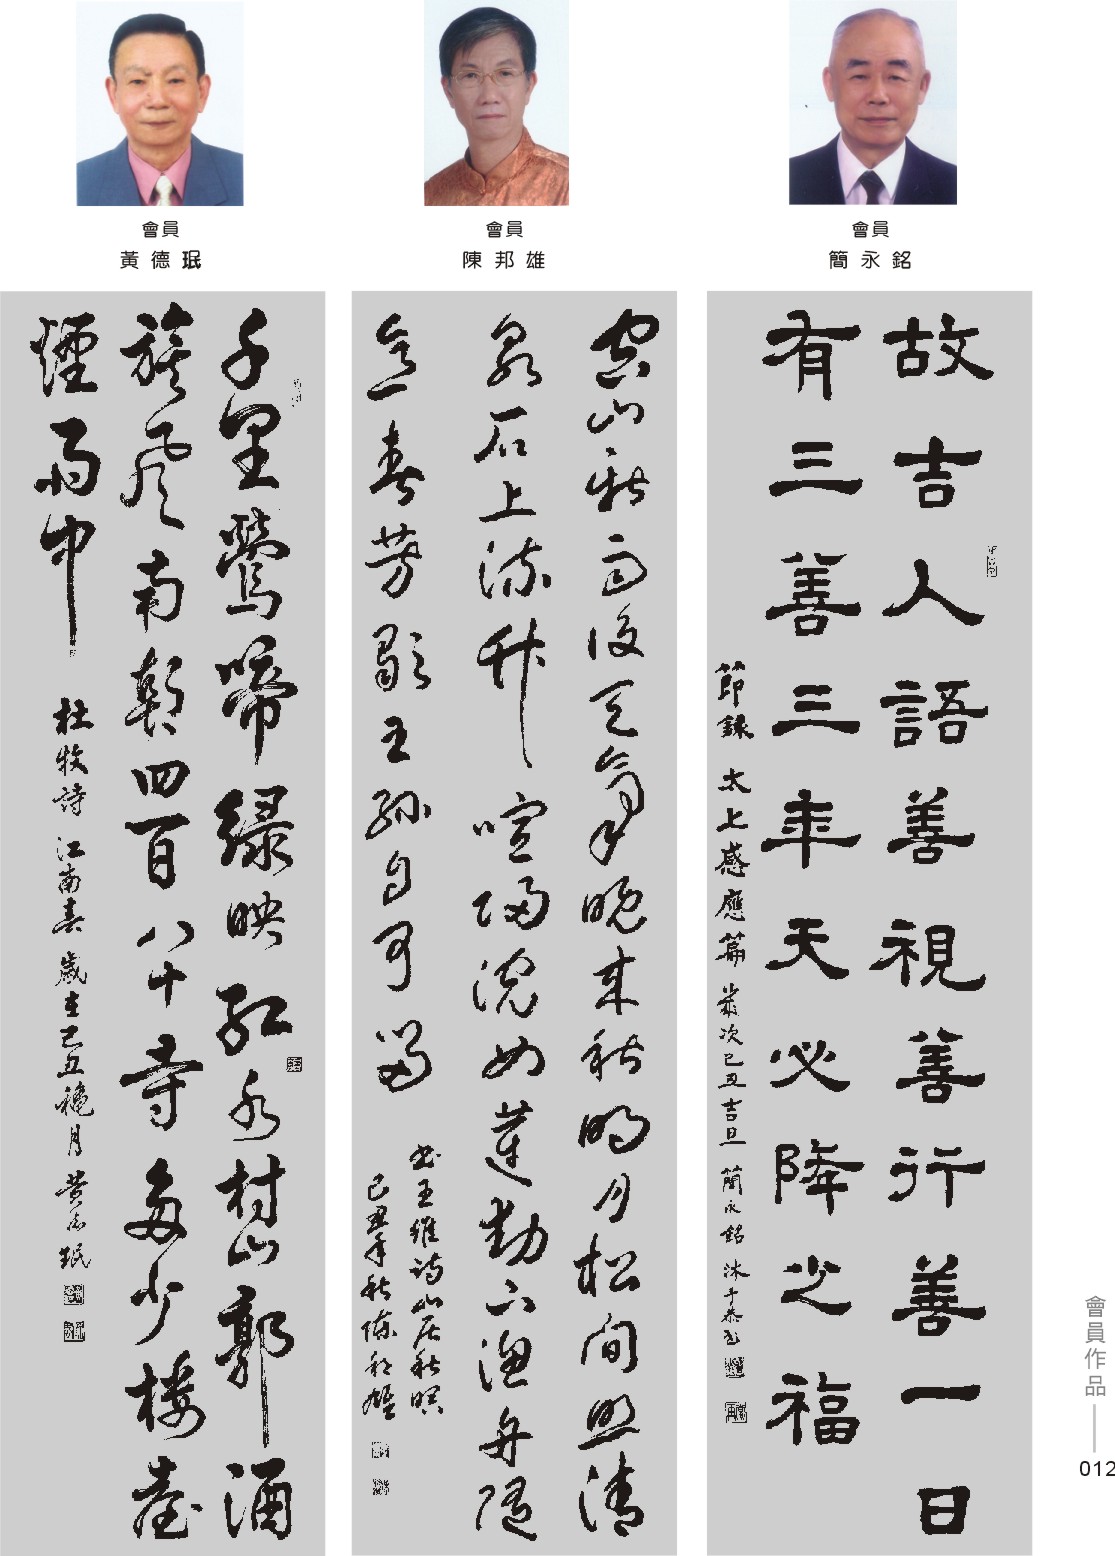 會員
簡永銘
會員
陳邦雄
會員
黃德珉
故吉人語善視善行善一日
有三善三年天必降之福
節錄 太上感應篇 歲次己丑吉旦 簡永銘 沐手恭書
空山新雨後天氣晚來秋明月松間照清
泉石上流竹喧歸浣女蓮動下漁舟隨
意春芳歇王孫自可留
書王維詩山居秋暝
己丑年秋陳邦雄
千里鶯啼綠映紅水村山郭酒
旗風南朝四百八十寺多少樓臺
煙雨中
杜牧詩 江南春 歲在己丑穐月 黃德珉
會員作品
012